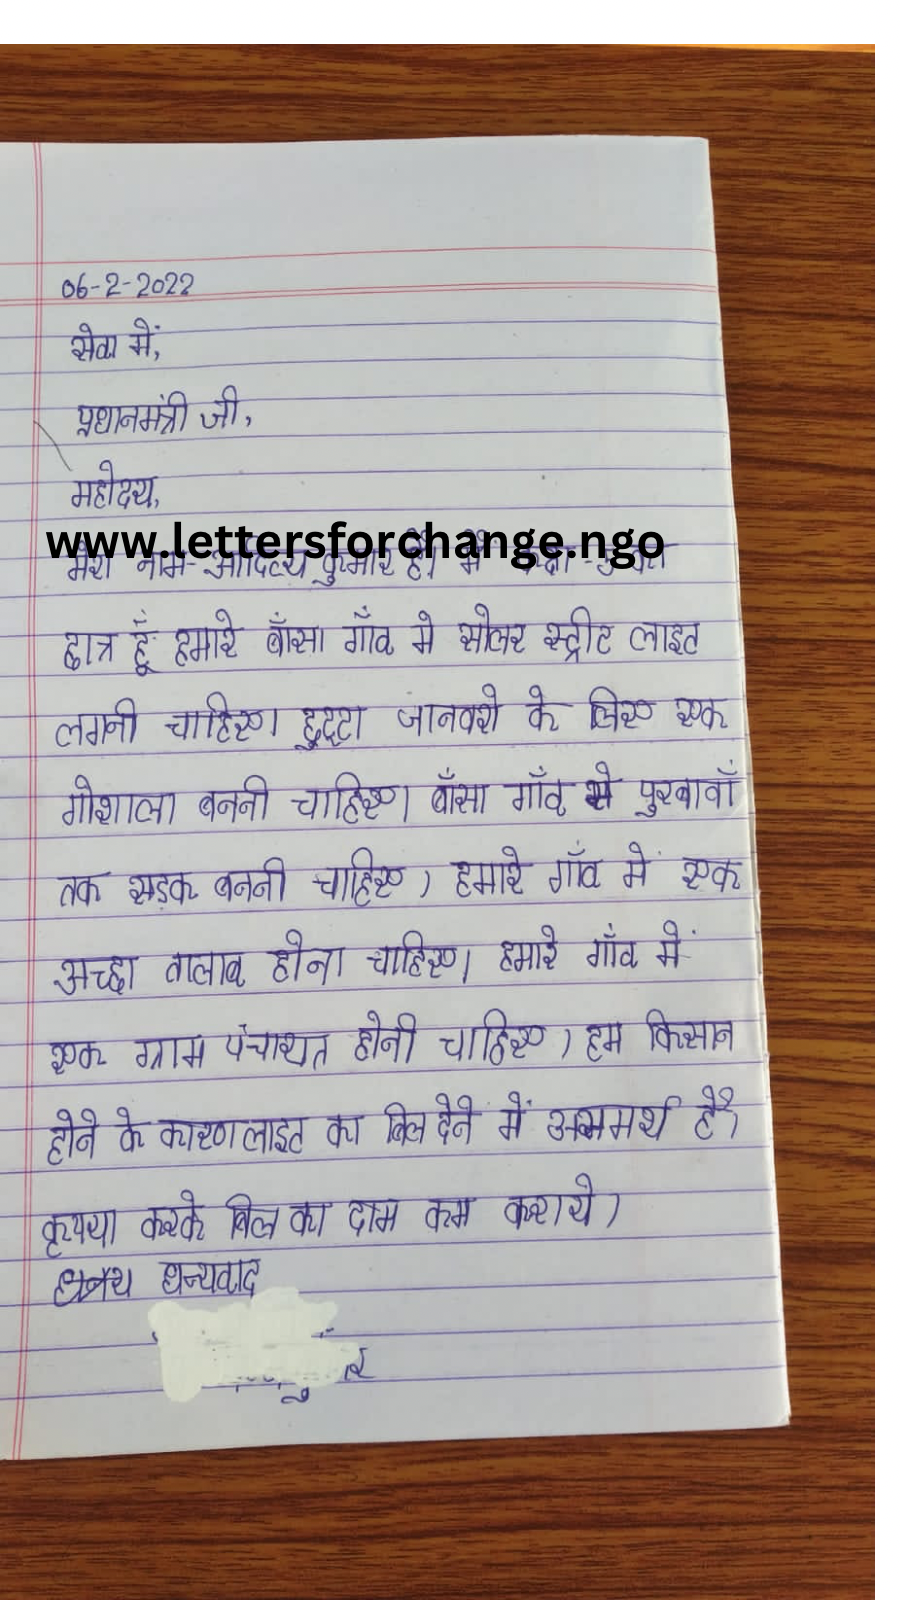 06-2-2022
सेवा में,
प्रधानमंत्री जी,
महोदय,
www.lettersforchange.ngo
मेरा नाम है। मैं
छात्र हूँ हमारे बाँसा गाँव मे सोलर स्ट्रीट लाइट
लगनी चाहिए। छुट्टा के लिए एक
गोशाला बननी चाहिए। बाँसा गाँव से पुरबावाँ
तक सड़क बननी चाहिए। हमारे गाँव में एक
अच्छा तालाब होना चाहिए। हमारे गाँव में
एक ग्राम पंचायत होनी चाहिए। हम किसान
होने के कारण लाइट का बिल देने में असमर्थ है।
कृपया करके बिल का दाम कम कराये।
धन्यवाद